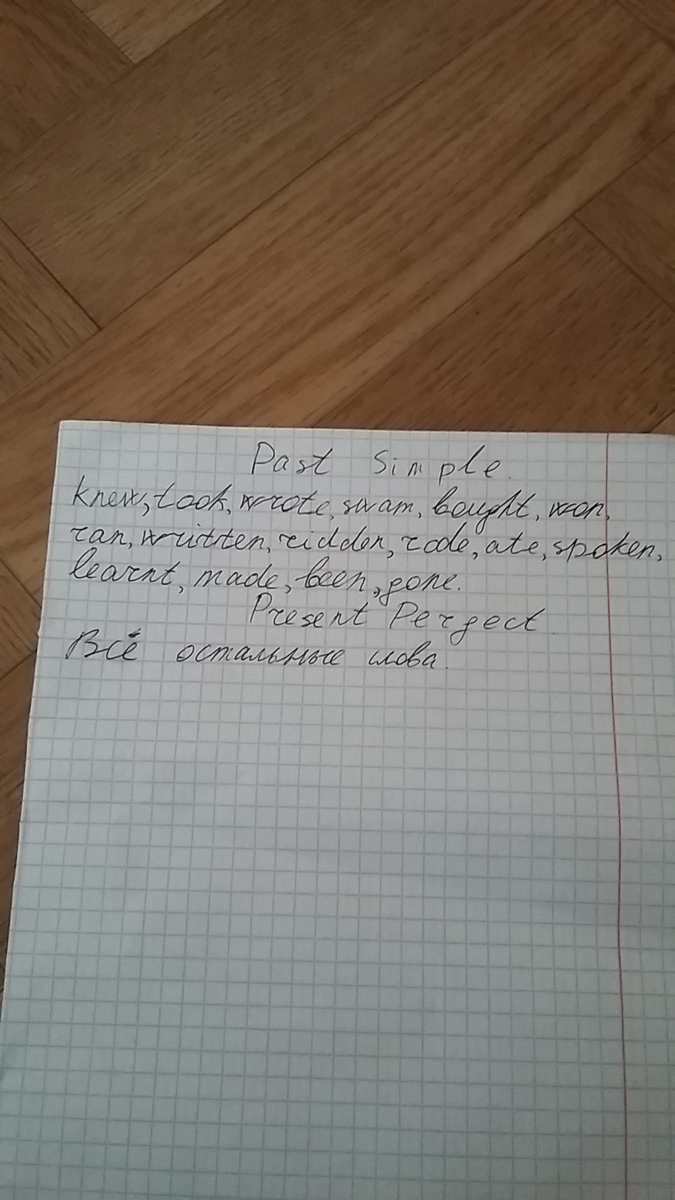 Past Simple.
knew, took, wrote, swam, bought, won,
ran, written, ridden, rode, ate, spoken,
learnt, made, been, gone.
Present Pergect
Все остальные слова.